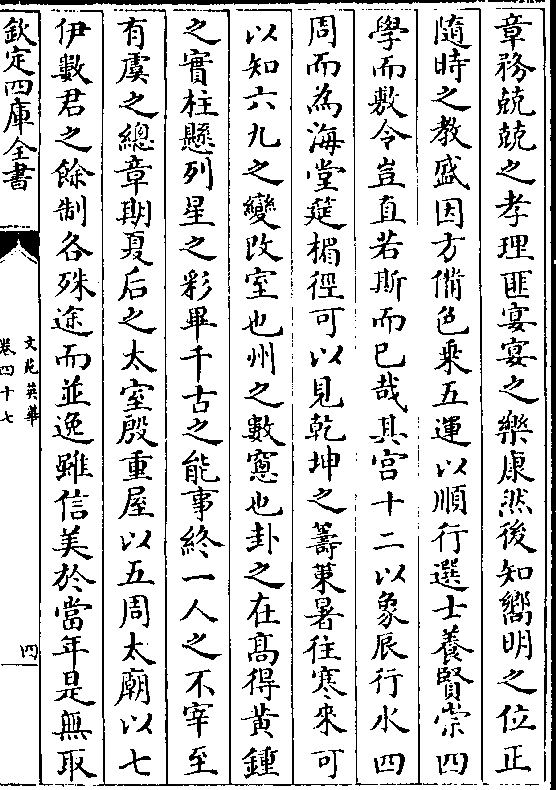 章務兢兢之孝理匪宴宴之樂康然後知嚮明之位正
隨時之教盛因方備色乗五運以順行選士養賢崇四
學而敷令豈直若斯而已哉其宫十二以象辰行水四
周而為海堂筵楣徑可以見乾坤之籌䇿暑往寒來可
以知六九之變改室也州之數窻也卦之在髙得黄鍾
之實柱懸列星之彩畢千古之能事終一人之不宰至
有虞之總章期夏后之太室殷重屋以五周太廟以七
伊數君之餘制各殊途而並逸雖信美於當年是無取
欽定四庫全書
文苑英華
卷四十七
四